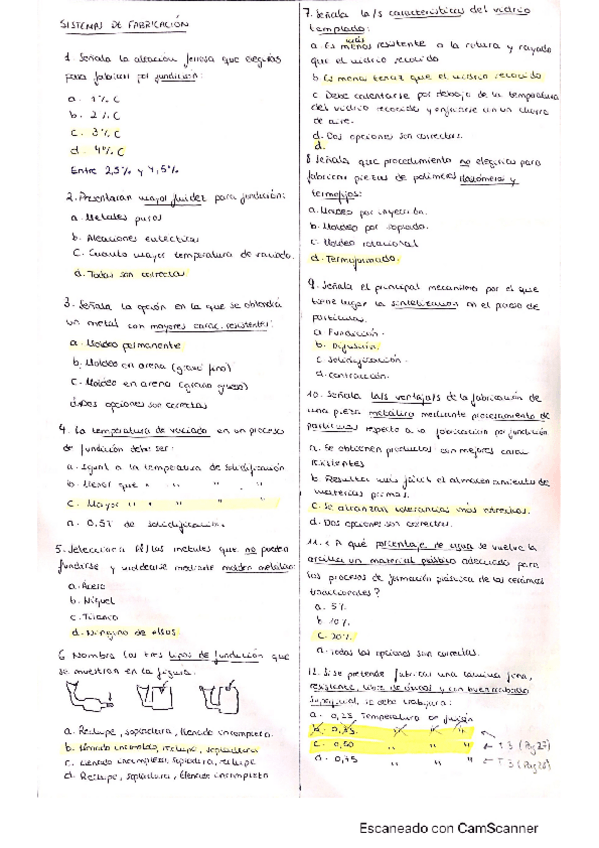 SISTEMAS DE FABRICACIÓN
1. Señala la aleación ferrosa que elegirías
para fabricar por fundición:
a. 1% C
b. 2% C
c. 3% C
d. 4% C
Entre 2,5% y 4,5%
2. Presentaran mayor fluidez para fundición:
a. Metales puros
b. Aleaciones eutecticas
c. Cuanto mayor temperatura de vaciado.
d. Todas son correctas
3. Señala la opción en la que se obtendrá
un metal con mayores carac. resistentes:
a. Moldeo permanente
b. Moldeo en arena (grano fino)
c. Moldeo en arena (grano grueso)
Dos opciones son correctas
4. La temperatura de vaciado en un proceso
de fundición debe ser:
a. Igual a la temperatura de solidificación
b. Menor que " " " "
c. Mayor " " " "
0.5T de solidificación.
5. Selecciona el/los metales que no pueden
fundirse y moldearse mediante moldeo metálico:
a. Acero
b. Niquel
c. Titanio
d. Ninguno de ellos
6 Nombra los tres tipos de fundición que
se muestran en la figura.
a. Rechupe, sopladura, llenado incompleto.
b. llenado incompleto, rechupe, sopladura
c. llenado incompleto, sopladura, rechupe
d. Rechupe, sopladura, llenado incompleto
7. Señala la/s características del vidrio
templado:
más
a. Es menos resistente a la rotura y rayado
que el vidrio recocido
b. Es menos tenaz que el vidrio recocido
c Debe calentarse por debajo de la temperatura
del vidrio recocido y enfriarse con un chorro
de aire.
d. Dos opciones son correctas.
d.
8 Señala que procedimiento no elegirías para
fabricar piezas de polímeros elastómeros y
termofijos:
a. Moldeo por inyección.
b. Moldeo por soplado.
c. Moldeo rotacional
d. Termoformado.
9. Señala el principal mecanismo por el que
tiene lugar la sinterización en el proceso de
partículas.
a Fundición.
b. Difusión.
c Solidificación.
d. contracción.
10. Señala la/s ventaja/s de la fabricación de
una pieza metálica mediante procesamiento de
partículas respecto a la fabricación por fundición
a. Se obtienen productos con mejores carac.
resistentes
b Resulta más fácil el almacenamiento de
materias primas.
c. Se alcanzan tolerancias más estrechas.
d. Dos opciones son correctas.
11. ¿A qué porcentaje de agua se vuelve la
arcilla un material plástico adecuado para
los procesos de formación plástica de las cerámicas
tradicionales?
a. 5%
b. 10%
c. 20%
Todas las opciones son correctas.
12. Si se pretende fabricar una lamina fina,
resistente, libre de óxidos y con buen acabado
superficial, se debe trabajar a:
a. 0,25 Temperatura de fusión
b. 0,35 " " "
c. 0,50 " " " ← T 3 (Pag 27)
0,75 " " " ← T 3 (Pag 28)
Escaneado con CamScanner